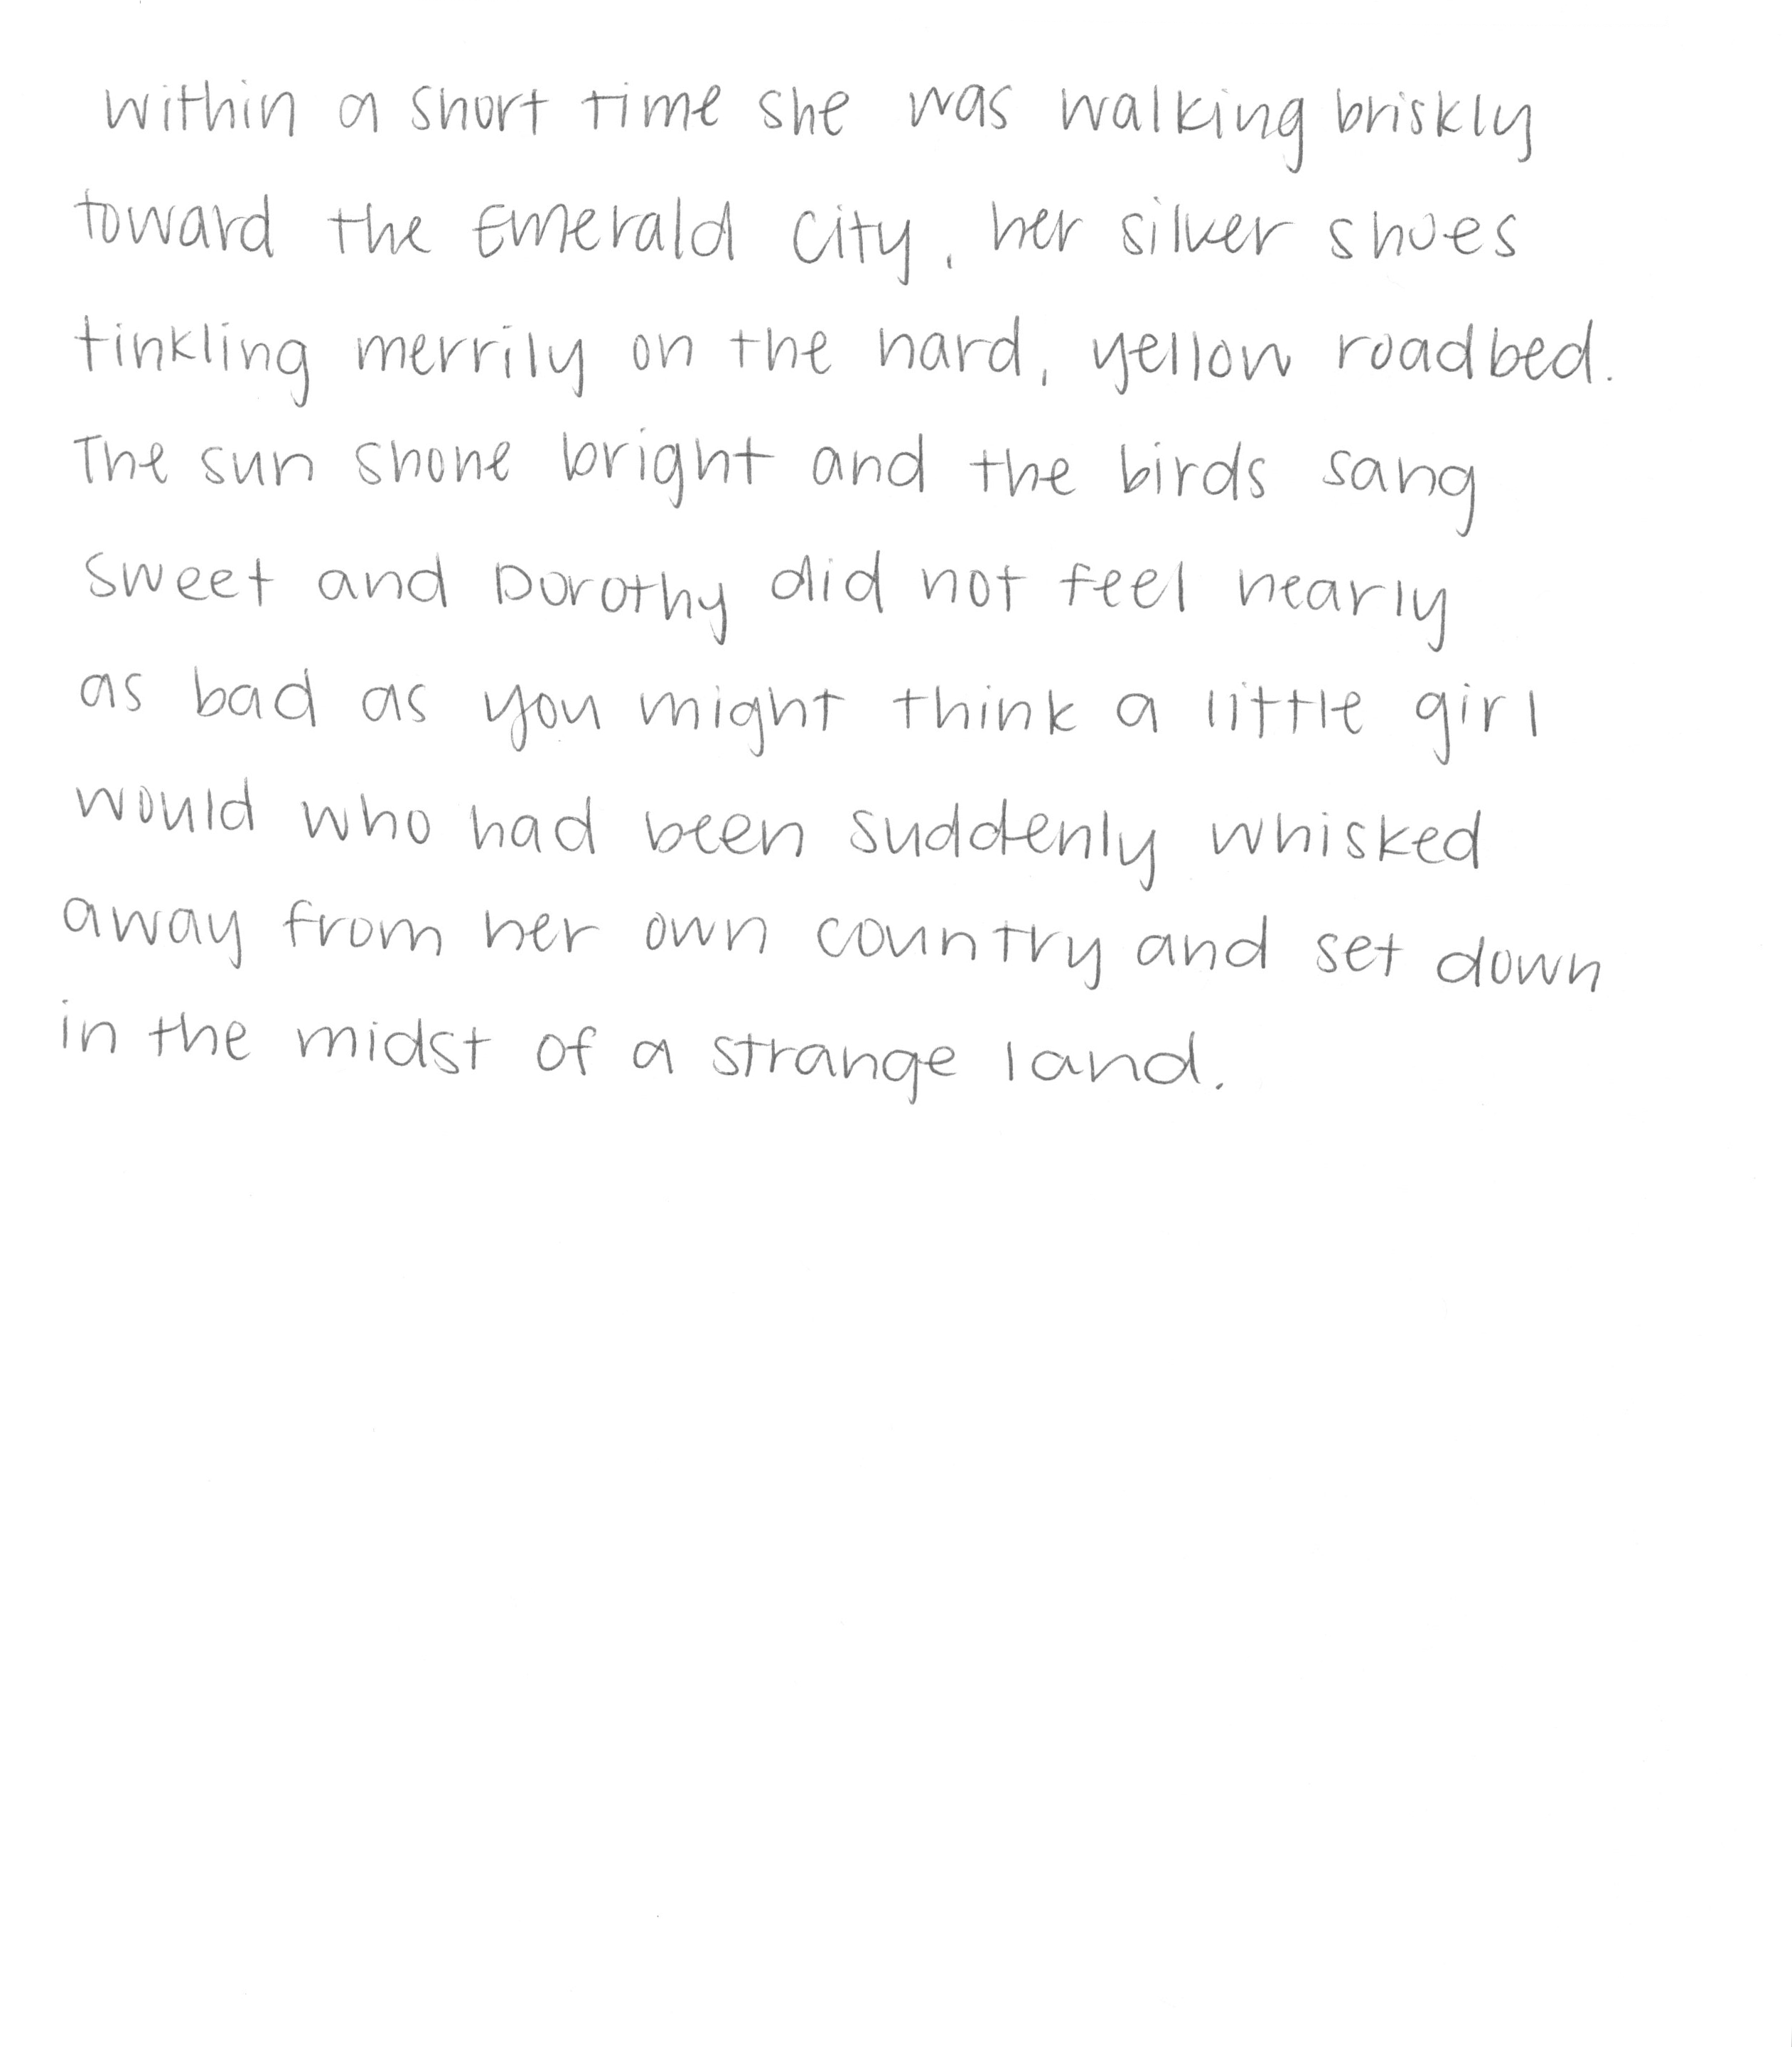 within a short time she was walking briskly
toward the Emerald City, her silver shoes
tinkling merrily on the hard, yellow roadbed.
The sun shone bright and the birds sang
sweet and Dorothy did not feel nearly
as bad as you might think a little girl
would who had been suddenly whisked
away from her own country and set down
in the midst of a strange land.